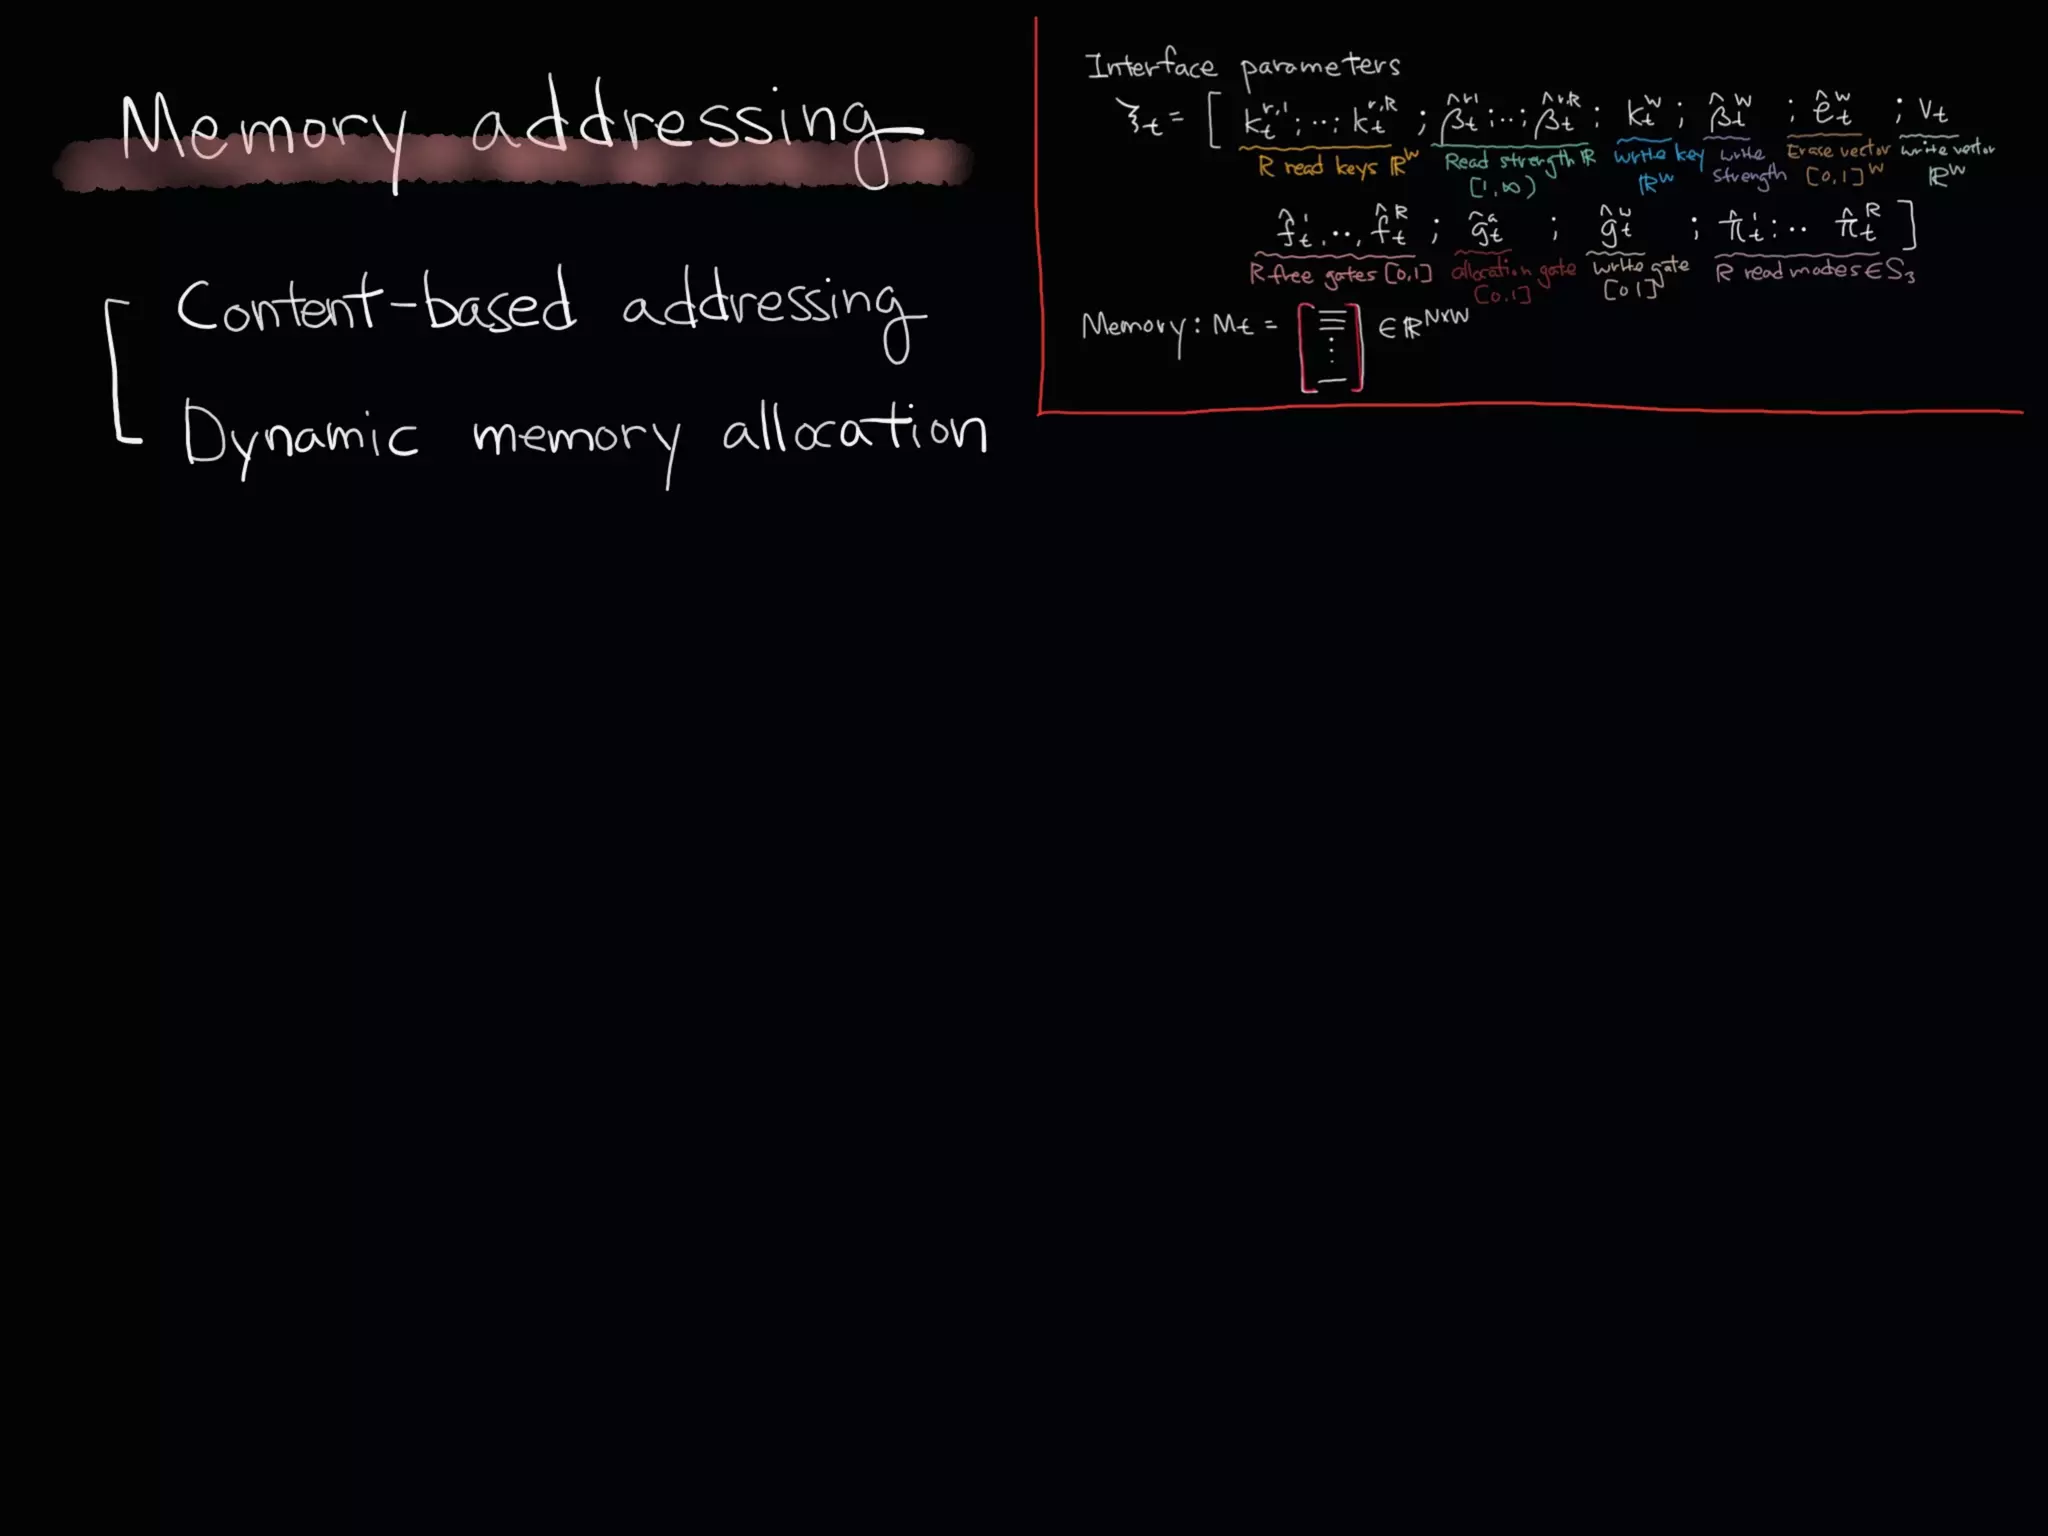 Memory addressing
Content-based addressing
Dynamic memory allocation
Interface parameters
ξ_t = [ k_t^{r,1}; ..; k_t^{r,R} ; β̂_t^{r,1}; ..; β̂_t^{r,R} ; k_t^w ; β̂_t^w ; ê_t^w ; v_t
R read keys ℝ^W Read strength ℝ write key write Erase vector write vector
[1,∞) ℝ^W strength [0,1]^W ℝ^W
f̂_t^1, .., f̂_t^R ; ĝ_t^a ; ĝ_t^w ; π̂_t^1; .. π̂_t^R ]
R free gates [0,1] allocation gate write gate R read modes ∈ S_3
[0,1] [0 1]
Memory: M_t = [ ] ∈ ℝ^{N×W}